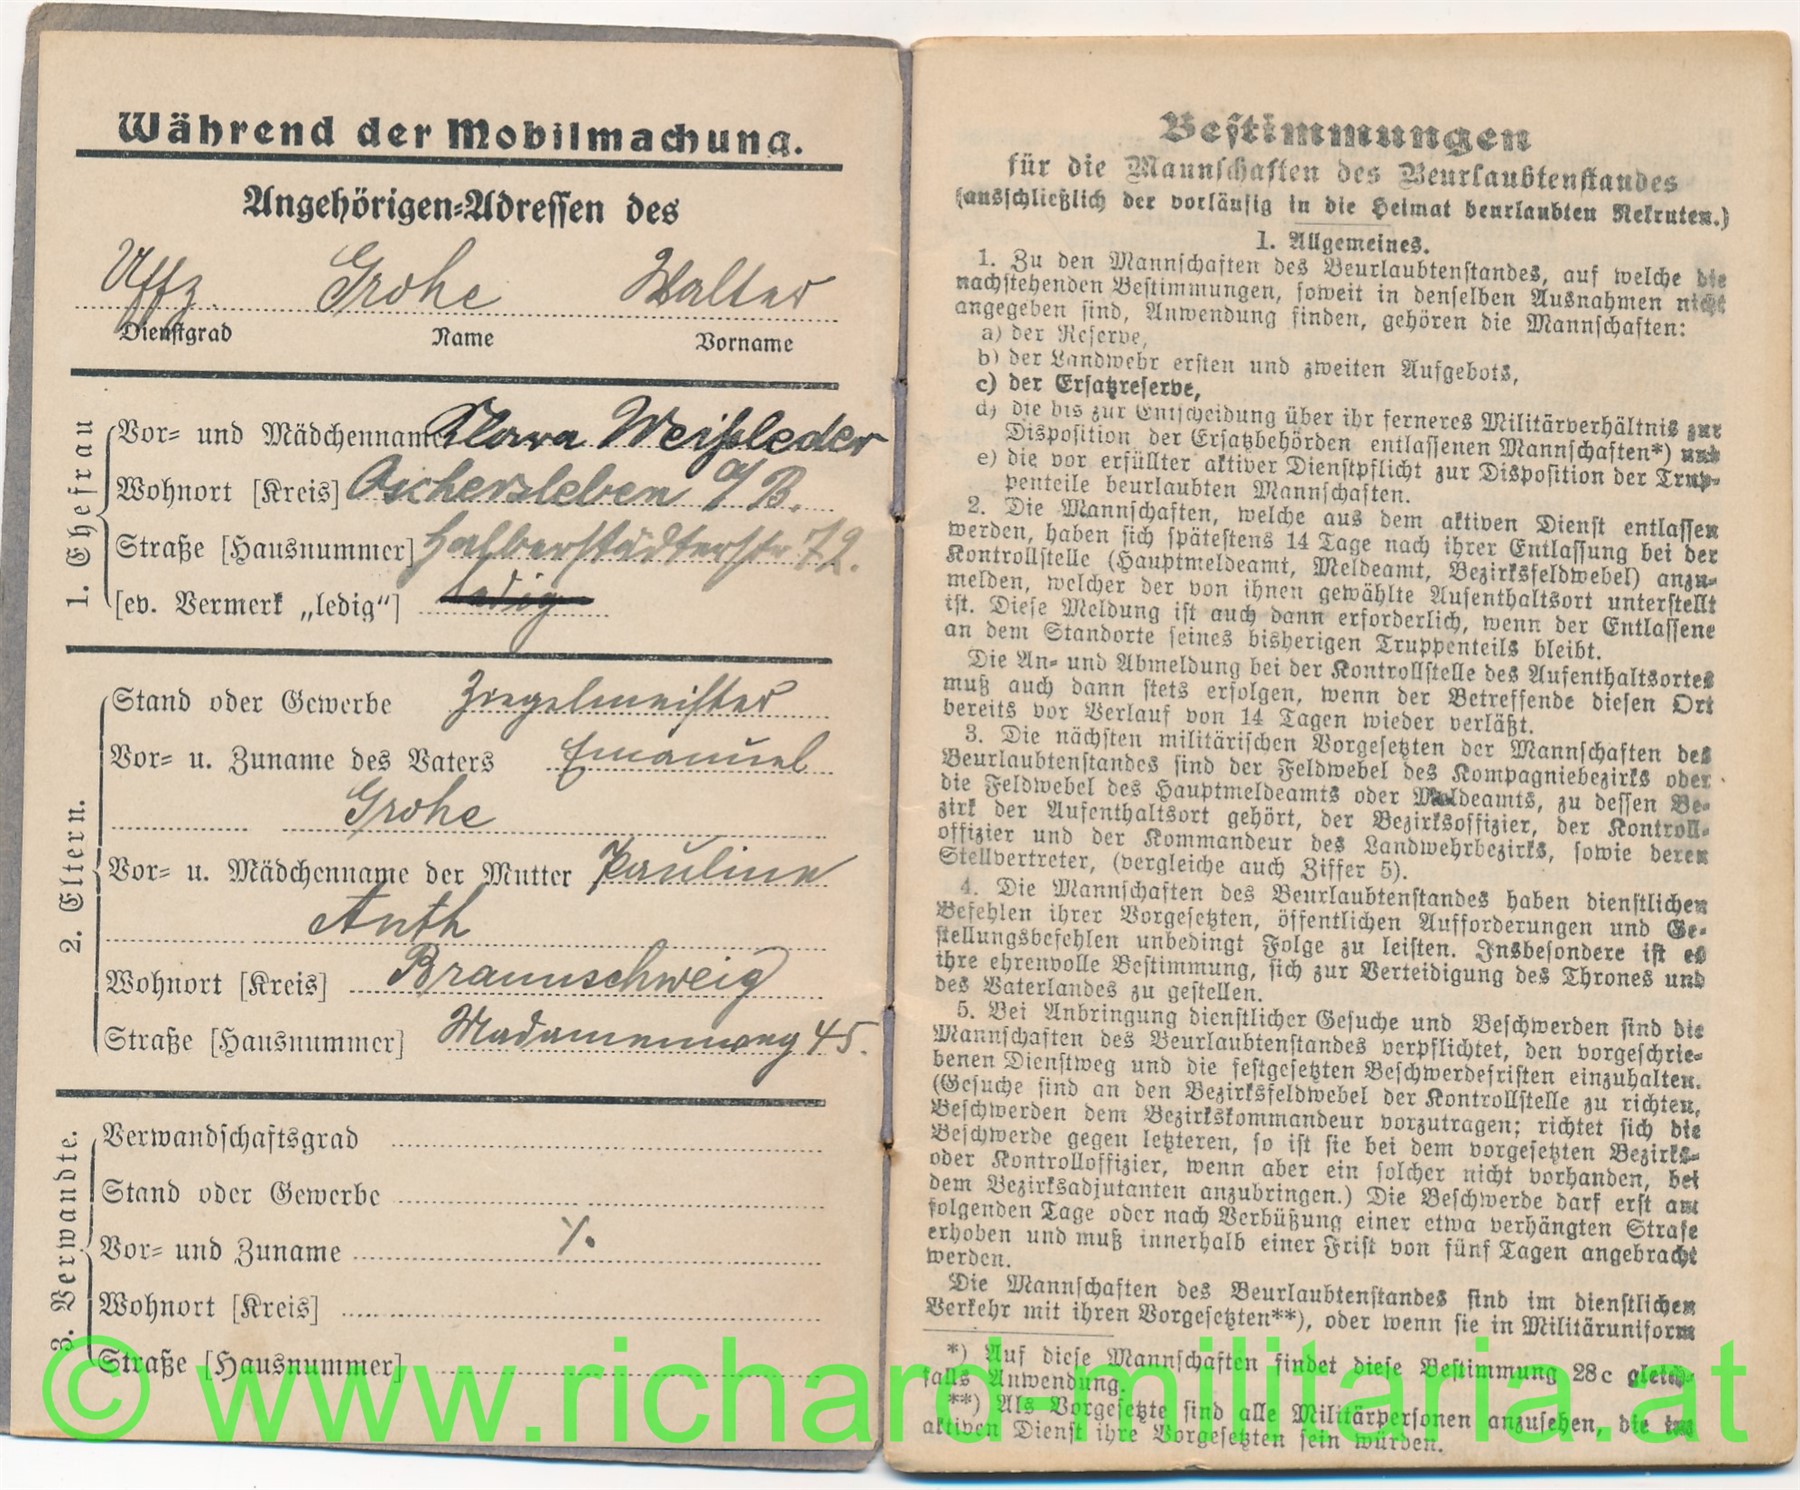 Während der Mobilmachung.
Angehörigen-Adressen des
Uffz. Grohe Walter
Dienstgrad Name Vorname
1. Ehefrau
Vor- und Mädchenname Klara Weißleder
Wohnort [Kreis] Oschersleben a/B.
Straße [Hausnummer] Halberstädterstr. 72.
[ev. Vermerk „ledig“] ledig
2. Eltern.
Stand oder Gewerbe Ziegelmeister
Vor- u. Zuname des Vaters Emanuel
Grohe
Vor- u. Mädchenname der Mutter Pauline
Anth
Wohnort [Kreis] Braunschweig
Straße [Hausnummer] Madamenweg 45.
3. Verwandte.
Verwandschaftsgrad
Stand oder Gewerbe
Vor- und Zuname ./.
Wohnort [Kreis]
Straße [Hausnummer]
Bestimmungen
für die Mannschaften des Beurlaubtenstandes
(ausschließlich der vorläufig in die Heimat beurlaubten Rekruten.)
1. Allgemeines.
1. Zu den Mannschaften des Beurlaubtenstandes, auf welche die
nachstehenden Bestimmungen, soweit in denselben Ausnahmen nicht
angegeben sind, Anwendung finden, gehören die Mannschaften:
a) der Reserve,
b) der Landwehr ersten und zweiten Aufgebots,
c) der Ersatzreserve,
d) die bis zur Entscheidung über ihr ferneres Militärverhältnis zur
Disposition der Ersatzbehörden entlassenen Mannschaften*) und
e) die vor erfüllter aktiver Dienstpflicht zur Disposition der Trup-
penteile beurlaubten Mannschaften.
2. Die Mannschaften, welche aus dem aktiven Dienst entlassen
werden, haben sich spätestens 14 Tage nach ihrer Entlassung bei der
Kontrollstelle (Hauptmeldeamt, Meldeamt, Bezirksfeldwebel) anzu-
melden, welcher der von ihnen gewählte Aufenthaltsort unterstellt
ist. Diese Meldung ist auch dann erforderlich, wenn der Entlassene
an dem Standorte seines bisherigen Truppenteils bleibt.
Die An- und Abmeldung bei der Kontrollstelle des Aufenthaltsortes
muß auch dann stets erfolgen, wenn der Betreffende diesen Ort
bereits vor Verlauf von 14 Tagen wieder verläßt.
3. Die nächsten militärischen Vorgesetzten der Mannschaften des
Beurlaubtenstandes sind der Feldwebel des Kompagniebezirks oder
die Feldwebel des Hauptmeldeamts oder Meldeamts, zu dessen Be-
zirk der Aufenthaltsort gehört, der Bezirksoffizier, der Kontroll-
offizier und der Kommandeur des Landwehrbezirks, sowie deren
Stellvertreter, (vergleiche auch Ziffer 5).
4. Die Mannschaften des Beurlaubtenstandes haben dienstlichen
Befehlen ihrer Vorgesetzten, öffentlichen Aufforderungen und Ge-
stellungsbefehlen unbedingt Folge zu leisten. Insbesondere ist es
ihre ehrenvolle Bestimmung, sich zur Verteidigung des Thrones und
des Vaterlandes zu gestellen.
5. Bei Anbringung dienstlicher Gesuche und Beschwerden sind die
Mannschaften des Beurlaubtenstandes verpflichtet, den vorgeschrie-
benen Dienstweg und die festgesetzten Beschwerdefristen einzuhalten.
(Gesuche sind an den Bezirksfeldwebel der Kontrollstelle zu richten,
Beschwerden dem Bezirkskommandeur vorzutragen; richtet sich die
Beschwerde gegen letzteren, so ist sie bei dem vorgesetzten Bezirks-
oder Kontrolloffizier, wenn aber ein solcher nicht vorhanden, bei
dem Bezirksadjutanten anzubringen.) Die Beschwerde darf erst am
folgenden Tage oder nach Verbüßung einer etwa verhängten Strafe
erhoben und muß innerhalb einer Frist von fünf Tagen angebracht
werden.
Die Mannschaften des Beurlaubtenstandes sind im dienstlichen
Verkehr mit ihren Vorgesetzten**), oder wenn sie in Militäruniform
*) Auf diese Mannschaften findet diese Bestimmung 28c gleich-
falls Anwendung.
**) Als Vorgesetzte sind alle Militärpersonen anzusehen, die im
aktiven Dienst ihre Vorgesetzten sein würden.
© www.richard-militaria.at